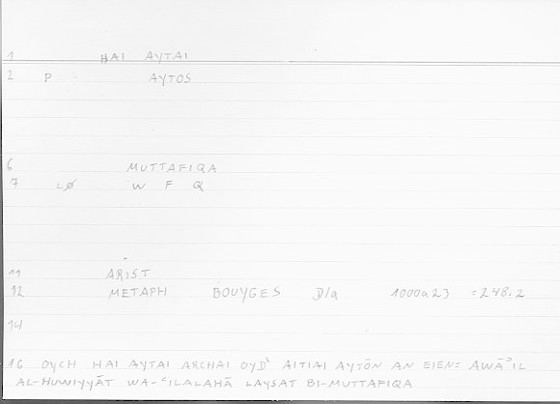 1 HAI AYTAI
2 P AYTOS
6 MUTTAFIQA
7 LØ W F Q
11 ARIST
12 METAPH BOUYGES D/a 1000a23 =248.2
14
16 OYCH HAI AYTAI ARCHAI OYD' AITIAI AYTŌN AN EIEN: AWĀʾIL
AL-HUWIYYĀT WA-ʿILALAHĀ LAYSAT BI-MUTTAFIQA